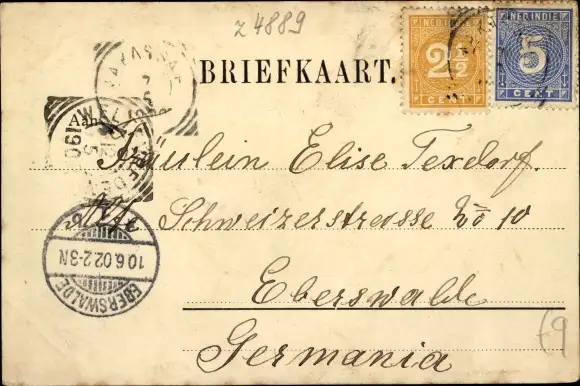 z 4889
BRIEFKAART.
NED. INDIE
2 1/2
CENT
NED. INDIE
5
CENT
Aan
Fräulein Elise Texdorf.
Schweizerstrasse No 10
Eberswalde
Germania
EBERSWALDE
10.6.02.2-3N